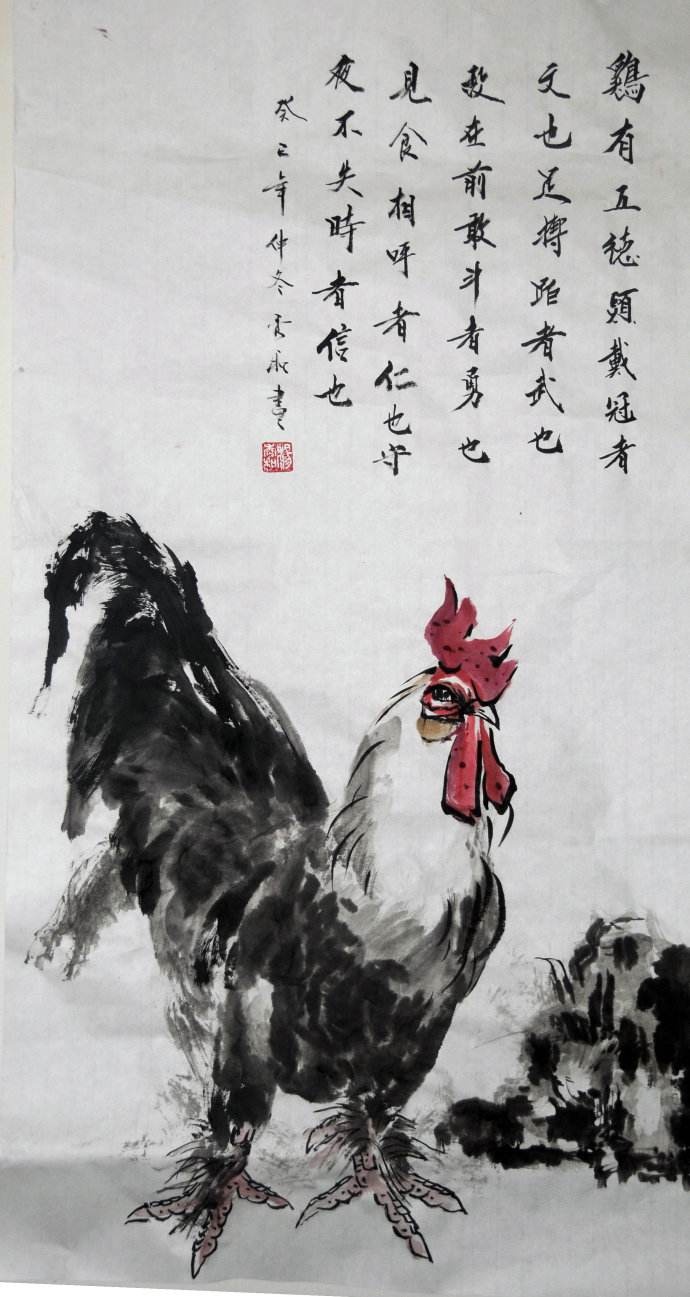 鷄有五德頭戴冠者
文也足搏距者武也
敌在前敢斗者勇也
見食相呼者仁也守
夜不失時者信也
癸巳年仲冬